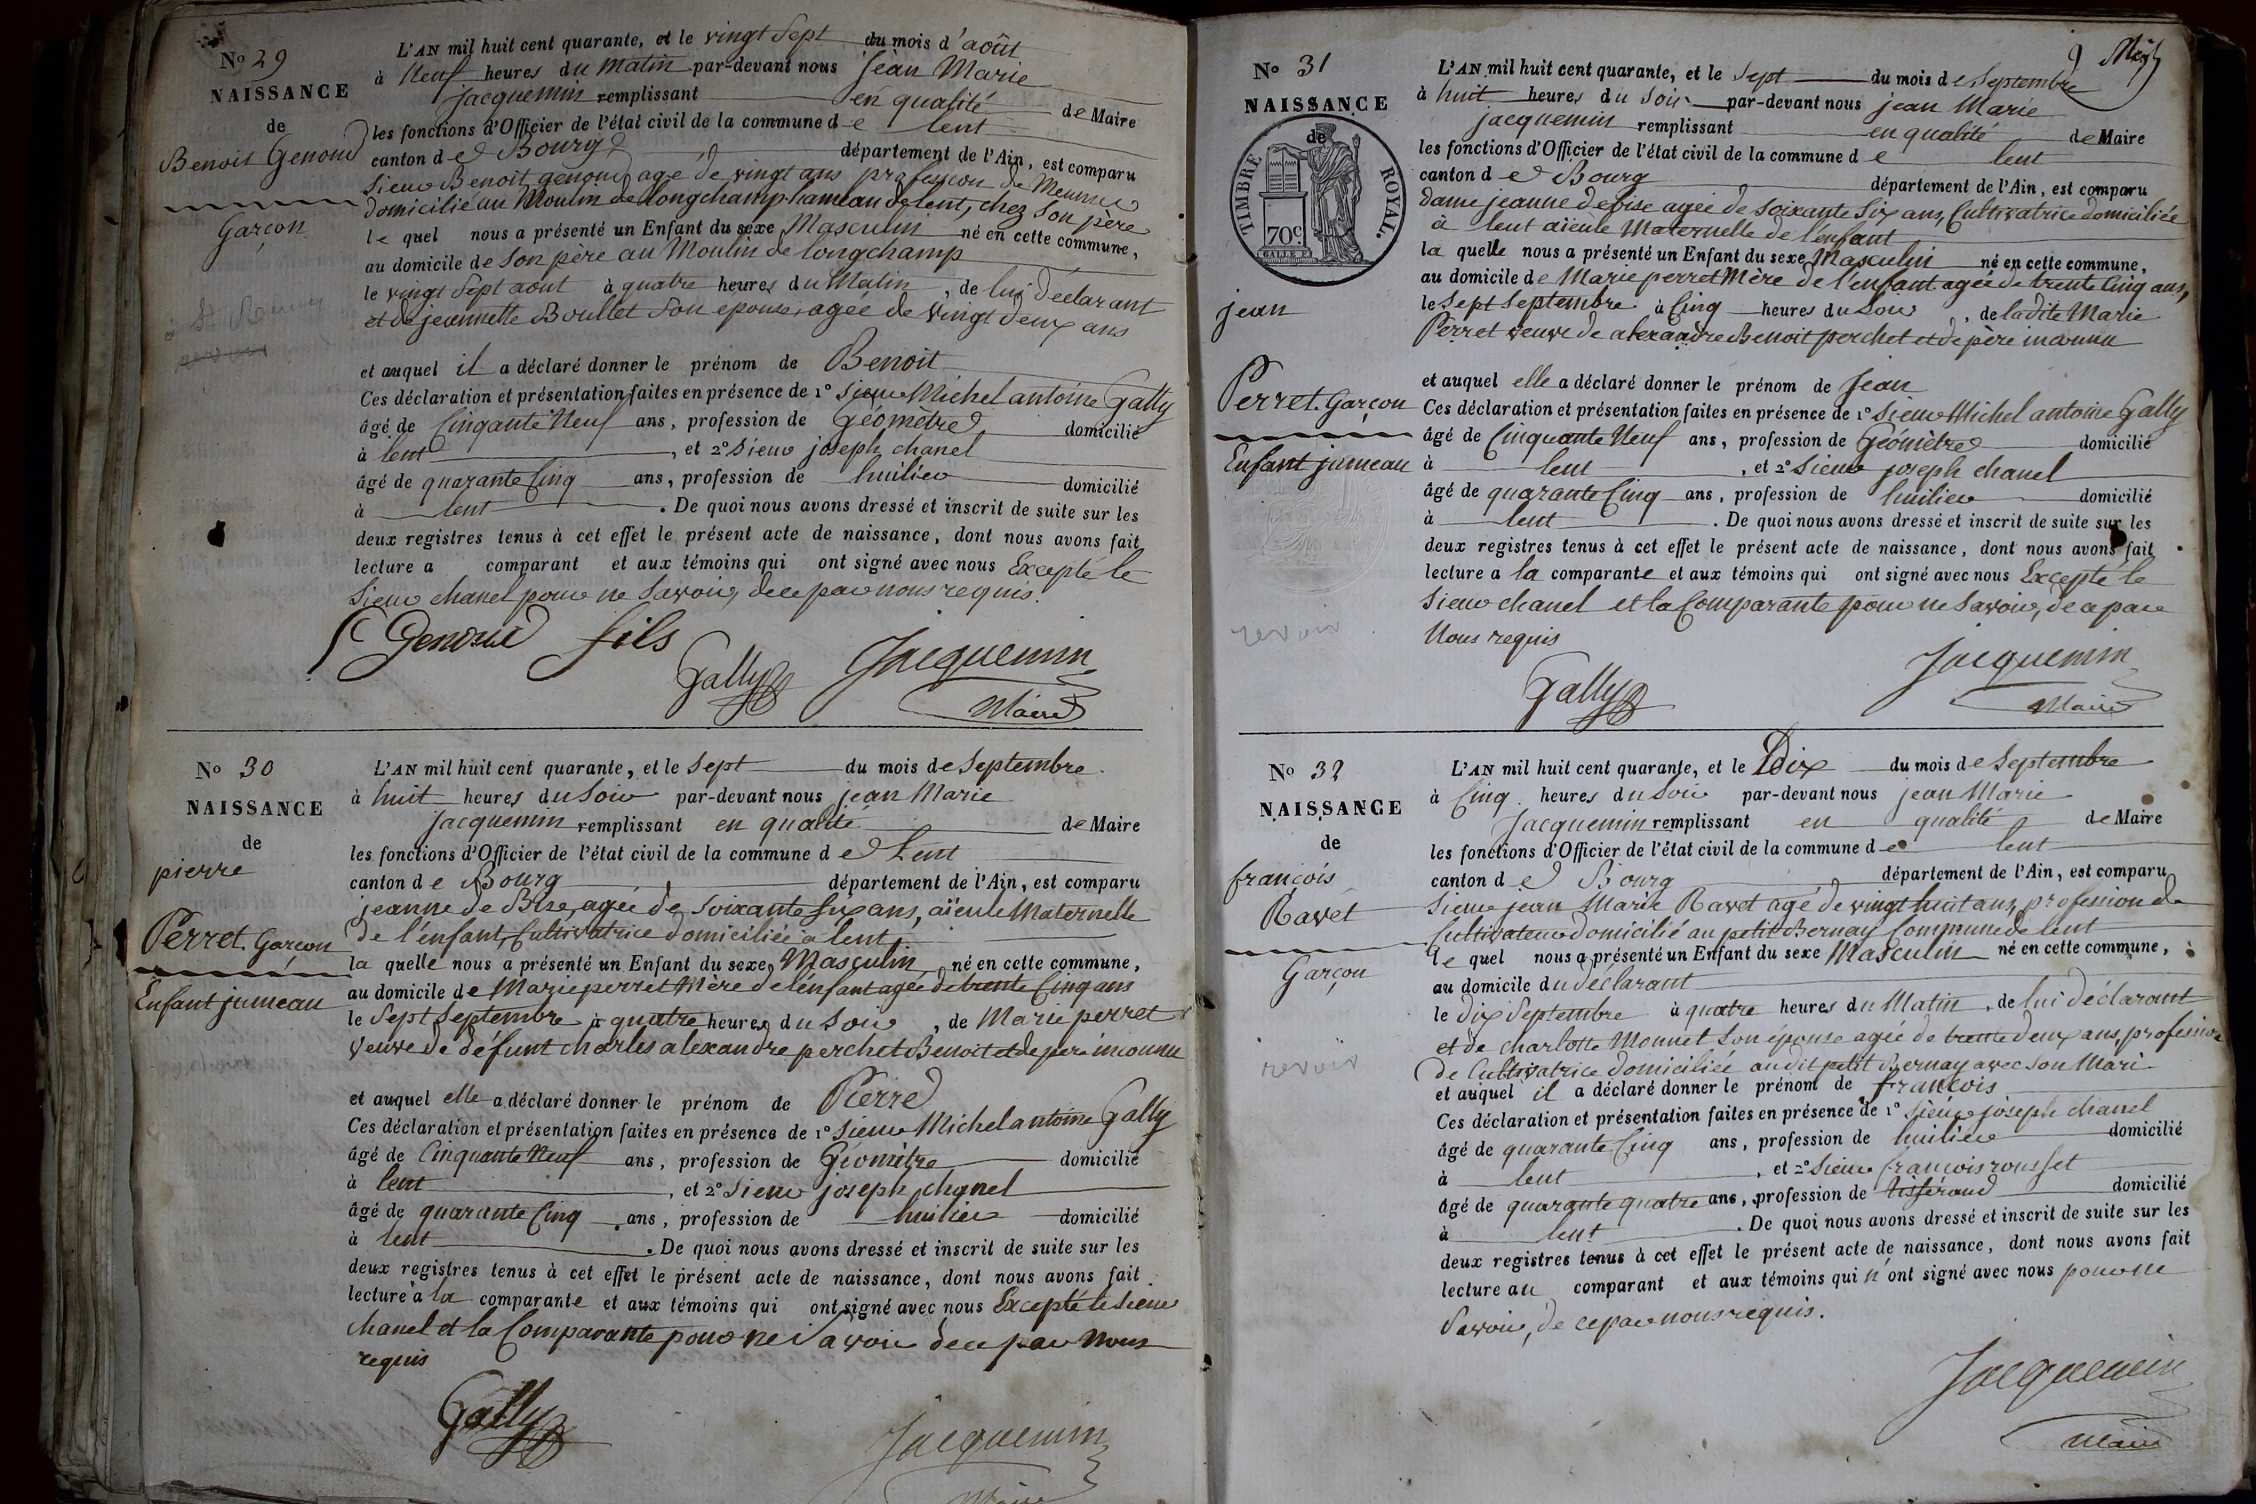 No 29
NAISSANCE
de
Benoit Genoud
Garçon
L'AN mil huit cent quarante, et le vingt Sept du mois d'août
à Neuf heures du matin par-devant nous jean Marie
Jacquemin remplissant en qualité de Maire
les fonctions d'Officier de l'état civil de la commune de lent
canton de Bourg département de l'Ain, est comparu
Sieur Benoit genoud age de vingt ans profession de Meunier
domicilié au Moulin de longchamp hameau de lent, chez Son père
le quel nous a présenté un Enfant du sexe Masculin né en cette commune,
au domicile de Son père au Moulin de longchamp
le vingt Sept aout à quatre heures du Matin, de lui déclarant
et de jeannette Boullet Son epouse, agée de vingt deux ans
et auquel il a déclaré donner le prénom de Benoit
Ces déclaration et présentation faites en présence de 1° Sieur Michel antoine Gally
âgé de Cinqante Neuf ans, profession de Géomètre domicilié
à lent, et 2° Sieur joseph chanel
âgé de quarante Cinq ans, profession de huilier domicilié
à lent. De quoi nous avons dressé et inscrit de suite sur les
deux registres tenus à cet effet le présent acte de naissance, dont nous avons fait
lecture a comparant et aux témoins qui ont signé avec nous Excepté le
Sieur chanel pour ne Savoir, de ce par nous requis.
Genoud fils
Gally
Jacquemin
Maire
No 30
NAISSANCE
de
pierre
Perret. Garçon
Enfant jumeau
L'AN mil huit cent quarante, et le Sept du mois de Septembre
à huit heures du Soir par-devant nous jean Marie
Jacquemin remplissant en qualité de Maire
les fonctions d'Officier de l'état civil de la commune de Lent
canton de Bourg département de l'Ain, est comparu
jeanne de Bise, agée de Soixante Six ans, aïeule Maternelle
de l'enfant, Cultivatrice domiciliée à lent
la quelle nous a présenté un Enfant du sexe Masculin né en cette commune,
au domicile de Marie perret Mère de l'enfant agée de trente Cinq ans
le Sept Septembre à quatre heures du Soir, de Marie perret
veuve de défunt charles alexandre perchet Benoit et de père inconnu
et auquel elle a déclaré donner le prénom de Pierre
Ces déclaration et présentation faites en présence de 1° Sieur Michel antoine Gally
âgé de Cinquante Neuf ans, profession de Géomètre domicilié
à lent, et 2° Sieur joseph chanel
âgé de quarante Cinq ans, profession de huilier domicilié
à lent. De quoi nous avons dressé et inscrit de suite sur les
deux registres tenus à cet effet le présent acte de naissance, dont nous avons fait
lecture à la comparante et aux témoins qui ont signé avec nous Excepté le Sieur
chanel et la Comparante pour ne Savoir de ce par Nous
requis
Gally
Jacquemin
Maire
9
No 31
NAISSANCE
de
TIMBRE ROYAL.
70c.
jean
Perret. Garçon
Enfant jumeau
revoir
L'AN mil huit cent quarante, et le Sept du mois de Septembre
à huit heures du Soir par-devant nous jean Marie
jacquemin remplissant en qualité de Maire
les fonctions d'Officier de l'état civil de la commune de lent
canton de Bourg département de l'Ain, est comparu
dame jeanne debise agée de Soixante Six ans, Cultivatrice domiciliée
à lent aïeule Maternelle de l'enfant
la quelle nous a présenté un Enfant du sexe Masculin né en cette commune,
au domicile de Marie perret Mère de l'enfant agée de trente Cinq ans,
le Sept Septembre à Cinq heures du Soir, de la dite Marie
Perret veuve de alexandre Benoit perchet et de père inconnu
et auquel elle a déclaré donner le prénom de Jean
Ces déclaration et présentation faites en présence de 1° Sieur Michel antoine Gally
âgé de Cinquante Neuf ans, profession de Géomètre domicilié
à lent, et 2° Sieur joseph chanel
âgé de quarante Cinq ans, profession de huilier domicilié
à lent. De quoi nous avons dressé et inscrit de suite sur les
deux registres tenus à cet effet le présent acte de naissance, dont nous avons fait
lecture a la comparante et aux témoins qui ont signé avec nous Excepté le
Sieur chanel et la Comparante pour ne Savoir, de ce par
Nous requis
Gally
Jacquemin
Maire
No 32
NAISSANCE
de
françois
Ravet
Garçon
revoir
L'AN mil huit cent quarante, et le Dix du mois de Septembre
à Cinq heures du Soir par-devant nous jean Marie
Jacquemin remplissant en qualité de Maire
les fonctions d'Officier de l'état civil de la commune de lent
canton de Bourg département de l'Ain, est comparu
Sieur jean Marie Ravet agé de vingt huit ans, profession de
Cultivateur domicilié au petit Bernay Commune de lent
le quel nous a présenté un Enfant du sexe Masculin né en cette commune,
au domicile du déclarant
le dix Septembre à quatre heures du Matin, de lui déclarant
et de charlotte Monnet Son épouse agée de trente deux ans, profession
de Cultivatrice domiciliée au dit petit Bernay avec Son Mari
et auquel il a déclaré donner le prénom de françois
Ces déclaration et présentation faites en présence de 1° Sieur joseph chanel
âgé de quarante Cinq ans, profession de huilier domicilié
à lent, et 2° Sieur françois rousset
âgé de quarante quatre ans, profession de tisserand domicilié
à lent. De quoi nous avons dressé et inscrit de suite sur les
deux registres tenus à cet effet le présent acte de naissance, dont nous avons fait
lecture au comparant et aux témoins qui n'ont signé avec nous pour ne
Savoir, de ce par nous requis.
Jacquemin
Maire